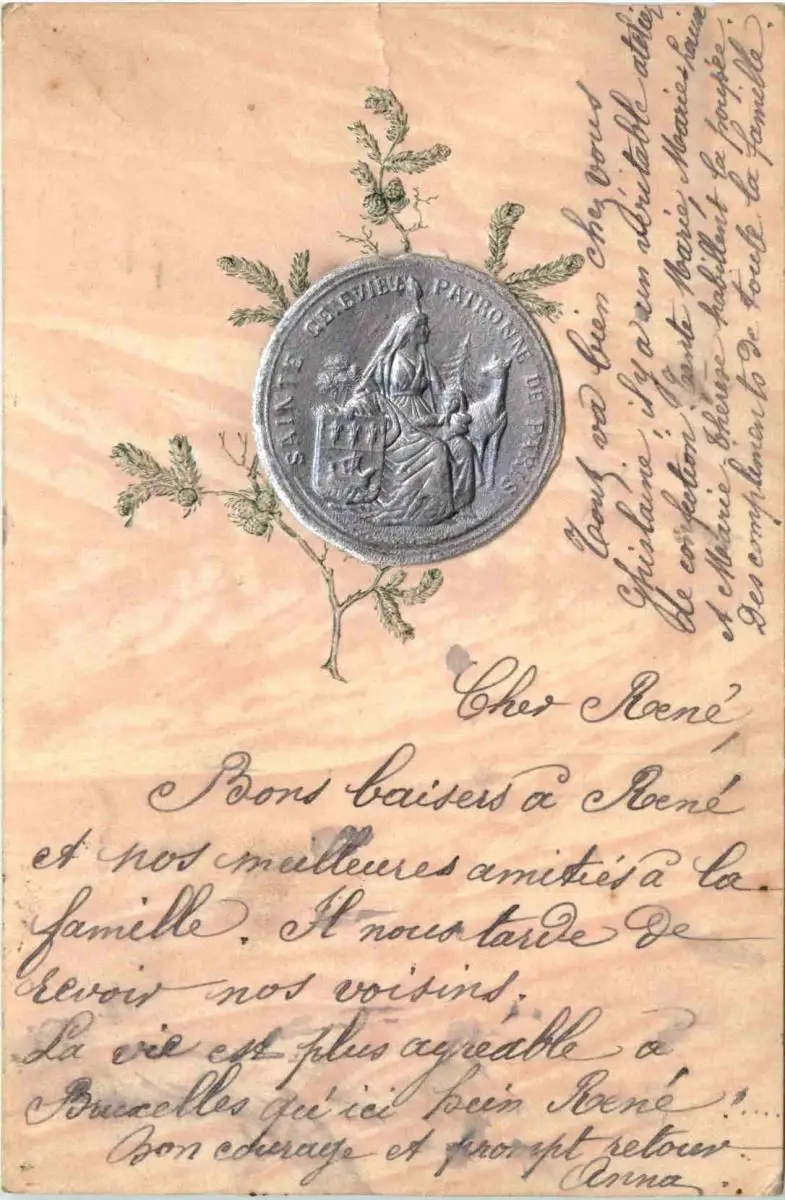 SAINTE GENEVIEVE PATRONNE DE PARIS
Tout va bien chez vous
Ghislaine il y a un véritable atelier
de confection, Marie, Marie
et Marie Thérèse habillent la poupée.
Des compliments de toute la famille.
Cher René,
Bons baisers à René
et nos meilleures amitiés à la
famille. Il nous tarde de
revoir nos voisins.
La vie est plus agréable à
Bruxelles qu'ici hein René!....
Bon courage et prompt retour.
Anna